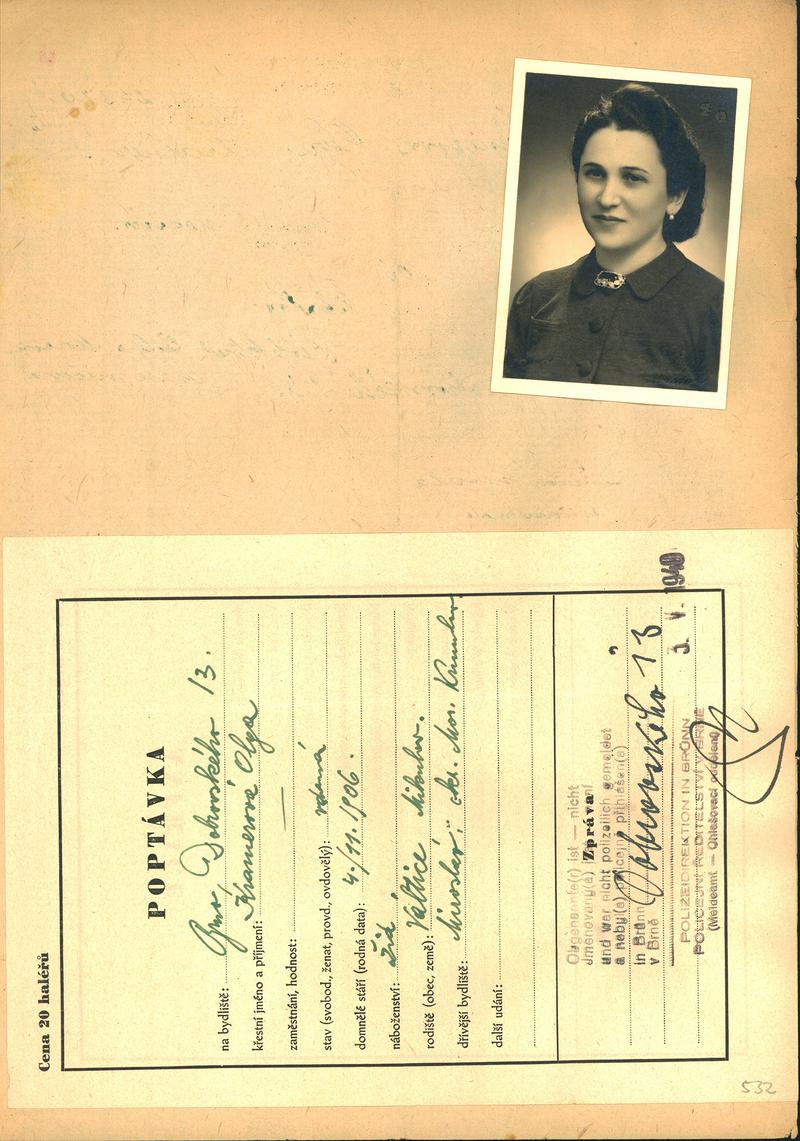 Cena 20 haléřů
POPTÁVKA
na bydliště: Brno, Dobrovského 13.
křestní jméno a příjmení: Kramerová Olga
zaměstnání, hodnost: —
stav (svobod., ženat, provd., ovdovělý): vdaná
domnělé stáří (rodná data): 4./11. 1906.
náboženství: žid
rodiště (obec, země): Valtice Mikulov.
dřívější bydliště: Miroslav, okr. Mor. Krumlov
další udání:
Zpráva
Obgenannte(r) ist — nicht
Jmenovaný(á)
und war nicht polizeilich gemeldet
a nebyl(a) policejně přihlášen(a)
in Brünn
v Brně
Dobrovského 13
3. V. 1940
POLIZEIDIREKTION IN BRÜNN
POLICEJNÍ ŘEDITELSTVÍ V BRNĚ
(Meldeamt — Ohlašovací oddělení)
532